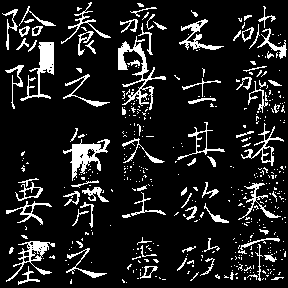 破齊諸天下
之士其欲破
齊者大王盡
養之知齊之
險阻要塞